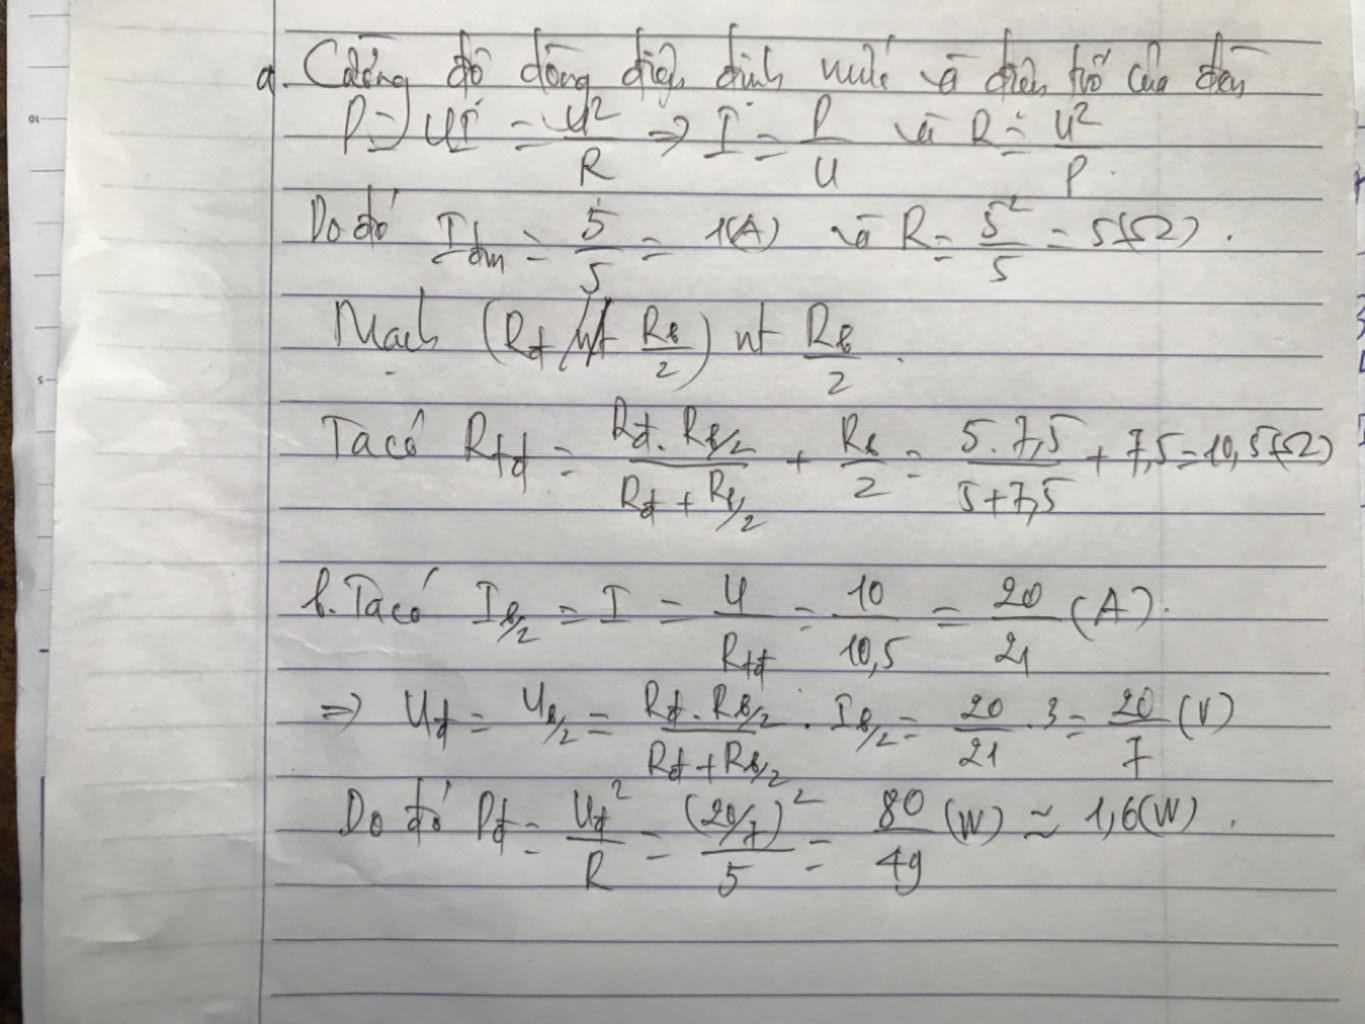 a. Cường độ dòng điện định mức và điện trở của đèn
P = UI = U²/R => I = P/U và R = U²/P.
Do đó Iđm = 5/5 = 1(A) và R = 5²/5 = 5(Ω).
Mạch (Rđ // Rb/2) nt Rb/2.
Ta có Rtđ = (Rđ.Rb/2)/(Rđ + Rb/2) + Rb/2 = (5.7,5)/(5+7,5) + 7,5 = 10,5(Ω)
b. Ta có Ib/2 = I = U/Rtđ = 10/10,5 = 20/21 (A).
=> Uđ = Ub/2 = (Rđ.Rb/2)/(Rđ + Rb/2) . Ib/2 = 20/21 . 3 = 20/7 (V)
Do đó Pđ = Uđ²/R = (20/7)²/5 = 80/49 (W) ≈ 1,6(W).
10
5